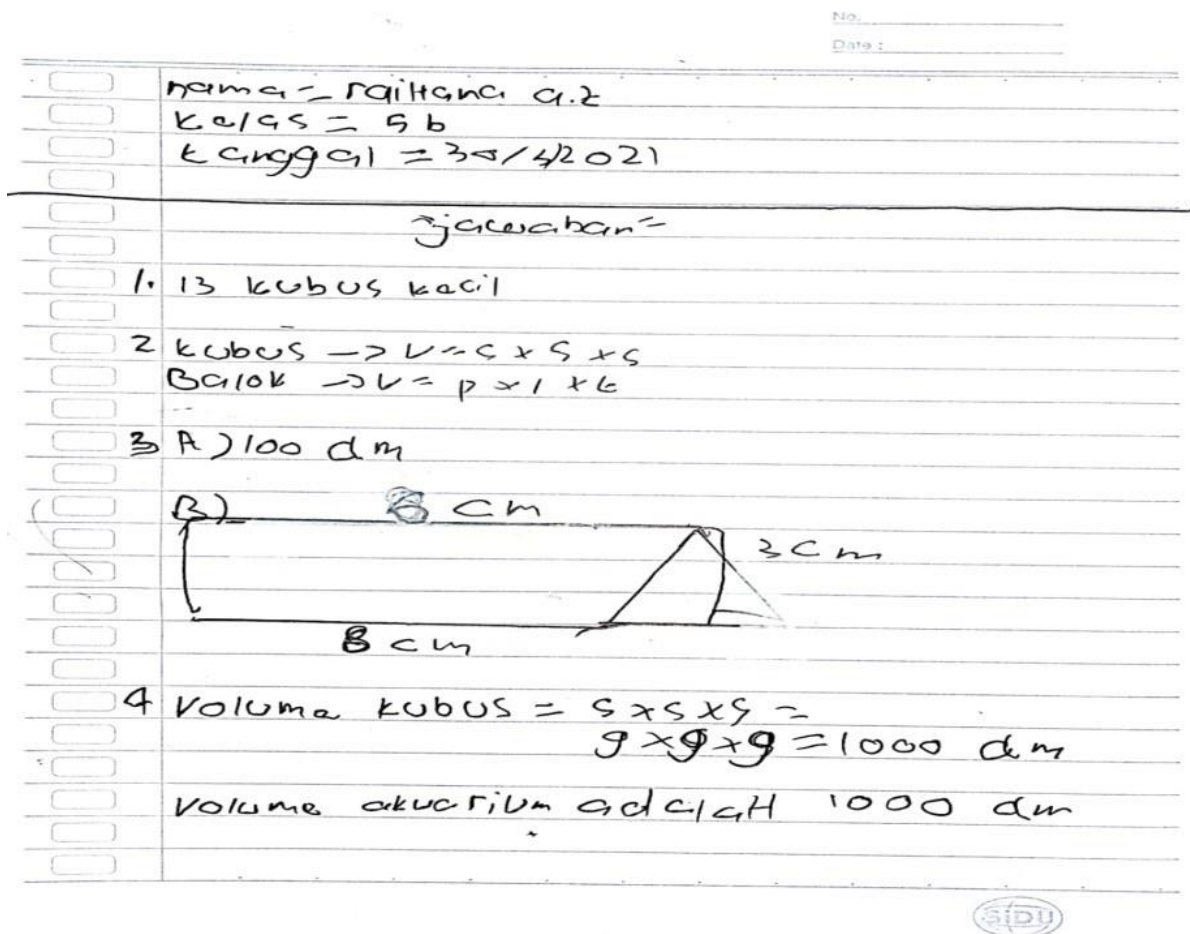 No.
Date :
nama = raiHana a.z
kelas = 5 b
tanggal = 30/4/2021
=jawaban=
1. 13 kubus kecil
2 kubus -> V = s x s x s
Balok -> V = p x l x t
3 A) 100 dm
B) 8 cm
3 cm
8 cm
4 Voluma kubus = s x s x s =
9 x 9 x 9 = 1000 dm
volume akuarium adalaH 1000 dm
SiDU